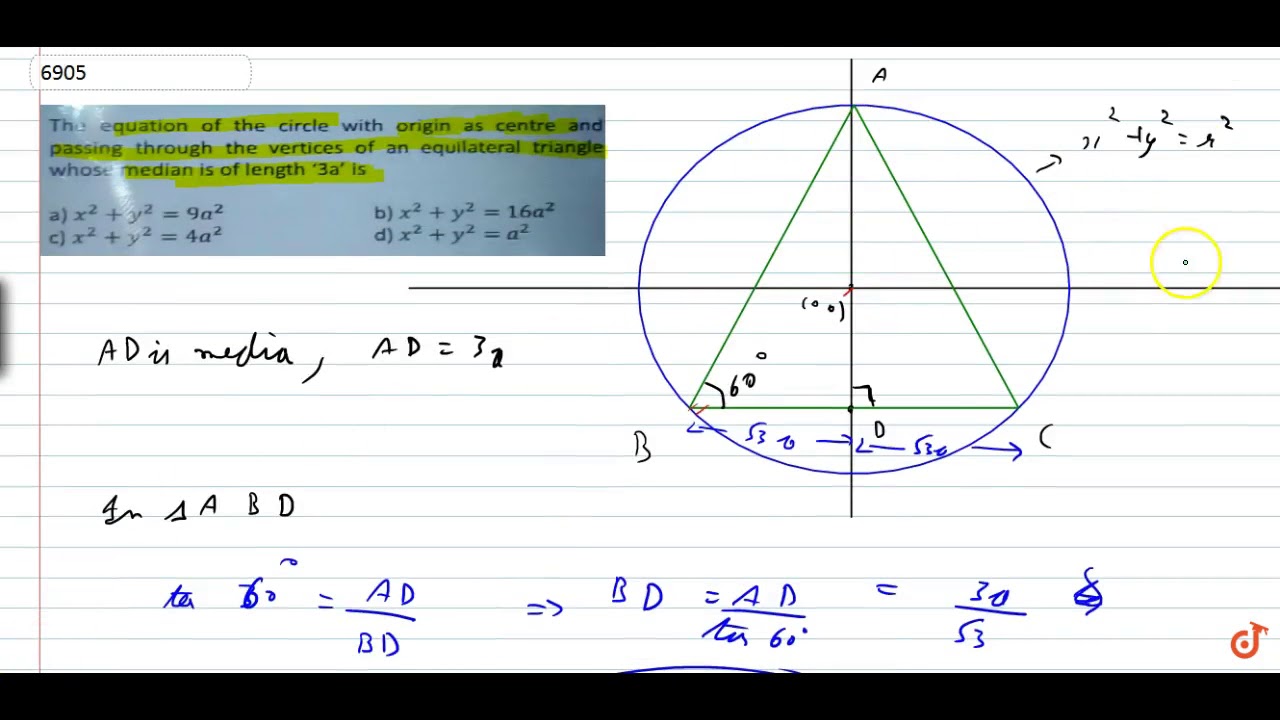 6905
The equation of the circle with origin as centre and
passing through the vertices of an equilateral triangle
whose median is of length '3a' is
a) x² + y² = 9a² b) x² + y² = 16a²
c) x² + y² = 4a² d) x² + y² = a²
A
x² + y² = r²
(0 0)
AD is media, AD = 3a
60°
B √3 a D √3a C
In Δ A B D
tan 60° = AD/BD => BD = AD/tan 60° = 3a/√3